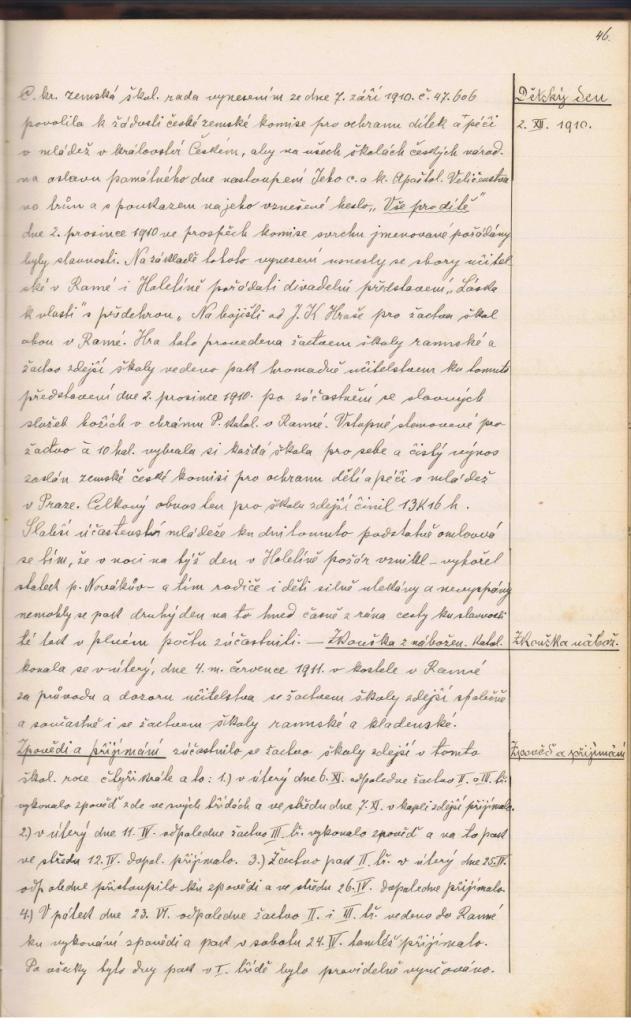 46.
C. kr. zemská škol. rada vynesením ze dne 7. září 1910. č. 47.606
Dětský den
povolila k žádosti české zemské komise pro ochranu dítek a péči
2. XII. 1910.
o mládež v království Českém, aby na všech školách českých národ.
na oslavu památného dne nastoupení Jeho c. a k. Apoštol. Veličenstva
na trůn a s poukazem na jeho vznešené heslo „Vše pro dítě"
dne 2. prosince 1910 ve prospěch komise svrchu jmenované pořádány
byly slavnosti. Na základě tohoto vynesení usnesly se sbory učitel-
ské v Ramé i Holetíně pořádati divadelní představení „Láska
k vlasti" s předehrou „Na bojišti od J. K. Hraše pro žactvo škol
obou v Ramé. Hra tato provedena žactvem školy ramské a
žactvo zdejší školy vedeno pak hromadně učitelstvem ku tomuto
představení dne 2. prosince 1910. po zúčastnění se slavných
služeb božích v chrámu P. katol. v Ramé. Vstupné stanovené pro
žactvo à 10 hal. vybrala si každá škola pro sebe a čistý výnos
zaslán zemské české komisi pro ochranu dětí a péči o mládež
v Praze. Celkový obnos ten pro školu zdejší činil 13 K 16 h.
Slabší účastenství mládeže ku dni tomuto podstatně omlouvá
se tím, že v noci na týž den v Holetíně požár vznikl – vyhořel
statek p. Novákův – a tím rodiče i děti silně ulekány a nevyspány
nemohly se pak druhý den na to hned časně z rána cesty ku slavnosti
té tak v plném počtu zúčastniti. — Zkouška z nábožen. katol.
Zkouška nábož.
konala se v úterý, dne 4. m. července 1911. v kostele v Ramé
za průvodu a dozoru učitelstva se žactvem školy zdejší společně
a současně i se žactvem školy ramské a kladenské.
Zpovědi a přijímání zúčastnilo se žactvo školy zdejší v tomto
Zpověď a přijímání
škol. roce čtyřikráte a to: 1.) v úterý dne 6. XI. odpoledne žactvo II. a III. tř.
vykonalo zpověď zde ve svých třídách a ve středu dne 7. XI. v kapli zdejší přijímalo.
2.) v úterý dne 11. IV. odpoledne žactvo III. tř. vykonalo zpověď a na to pak
ve středu 12. IV. dopol. přijímalo. 3.) Žactvo pak II. tř. v úterý dne 25. IV.
odpoledne přistoupilo ku zpovědi a ve středu 26. IV. dopoledne přijímalo.
4.) V pátek dne 23. VI. odpoledne žactvo II. i III. tř. vedeno do Ramé
ku vykonání zpovědi a pak v sobotu 24. VI. tamtéž přijímalo.
Po všecky tyto dny pak v I. třídě bylo pravidelně vyučováno.